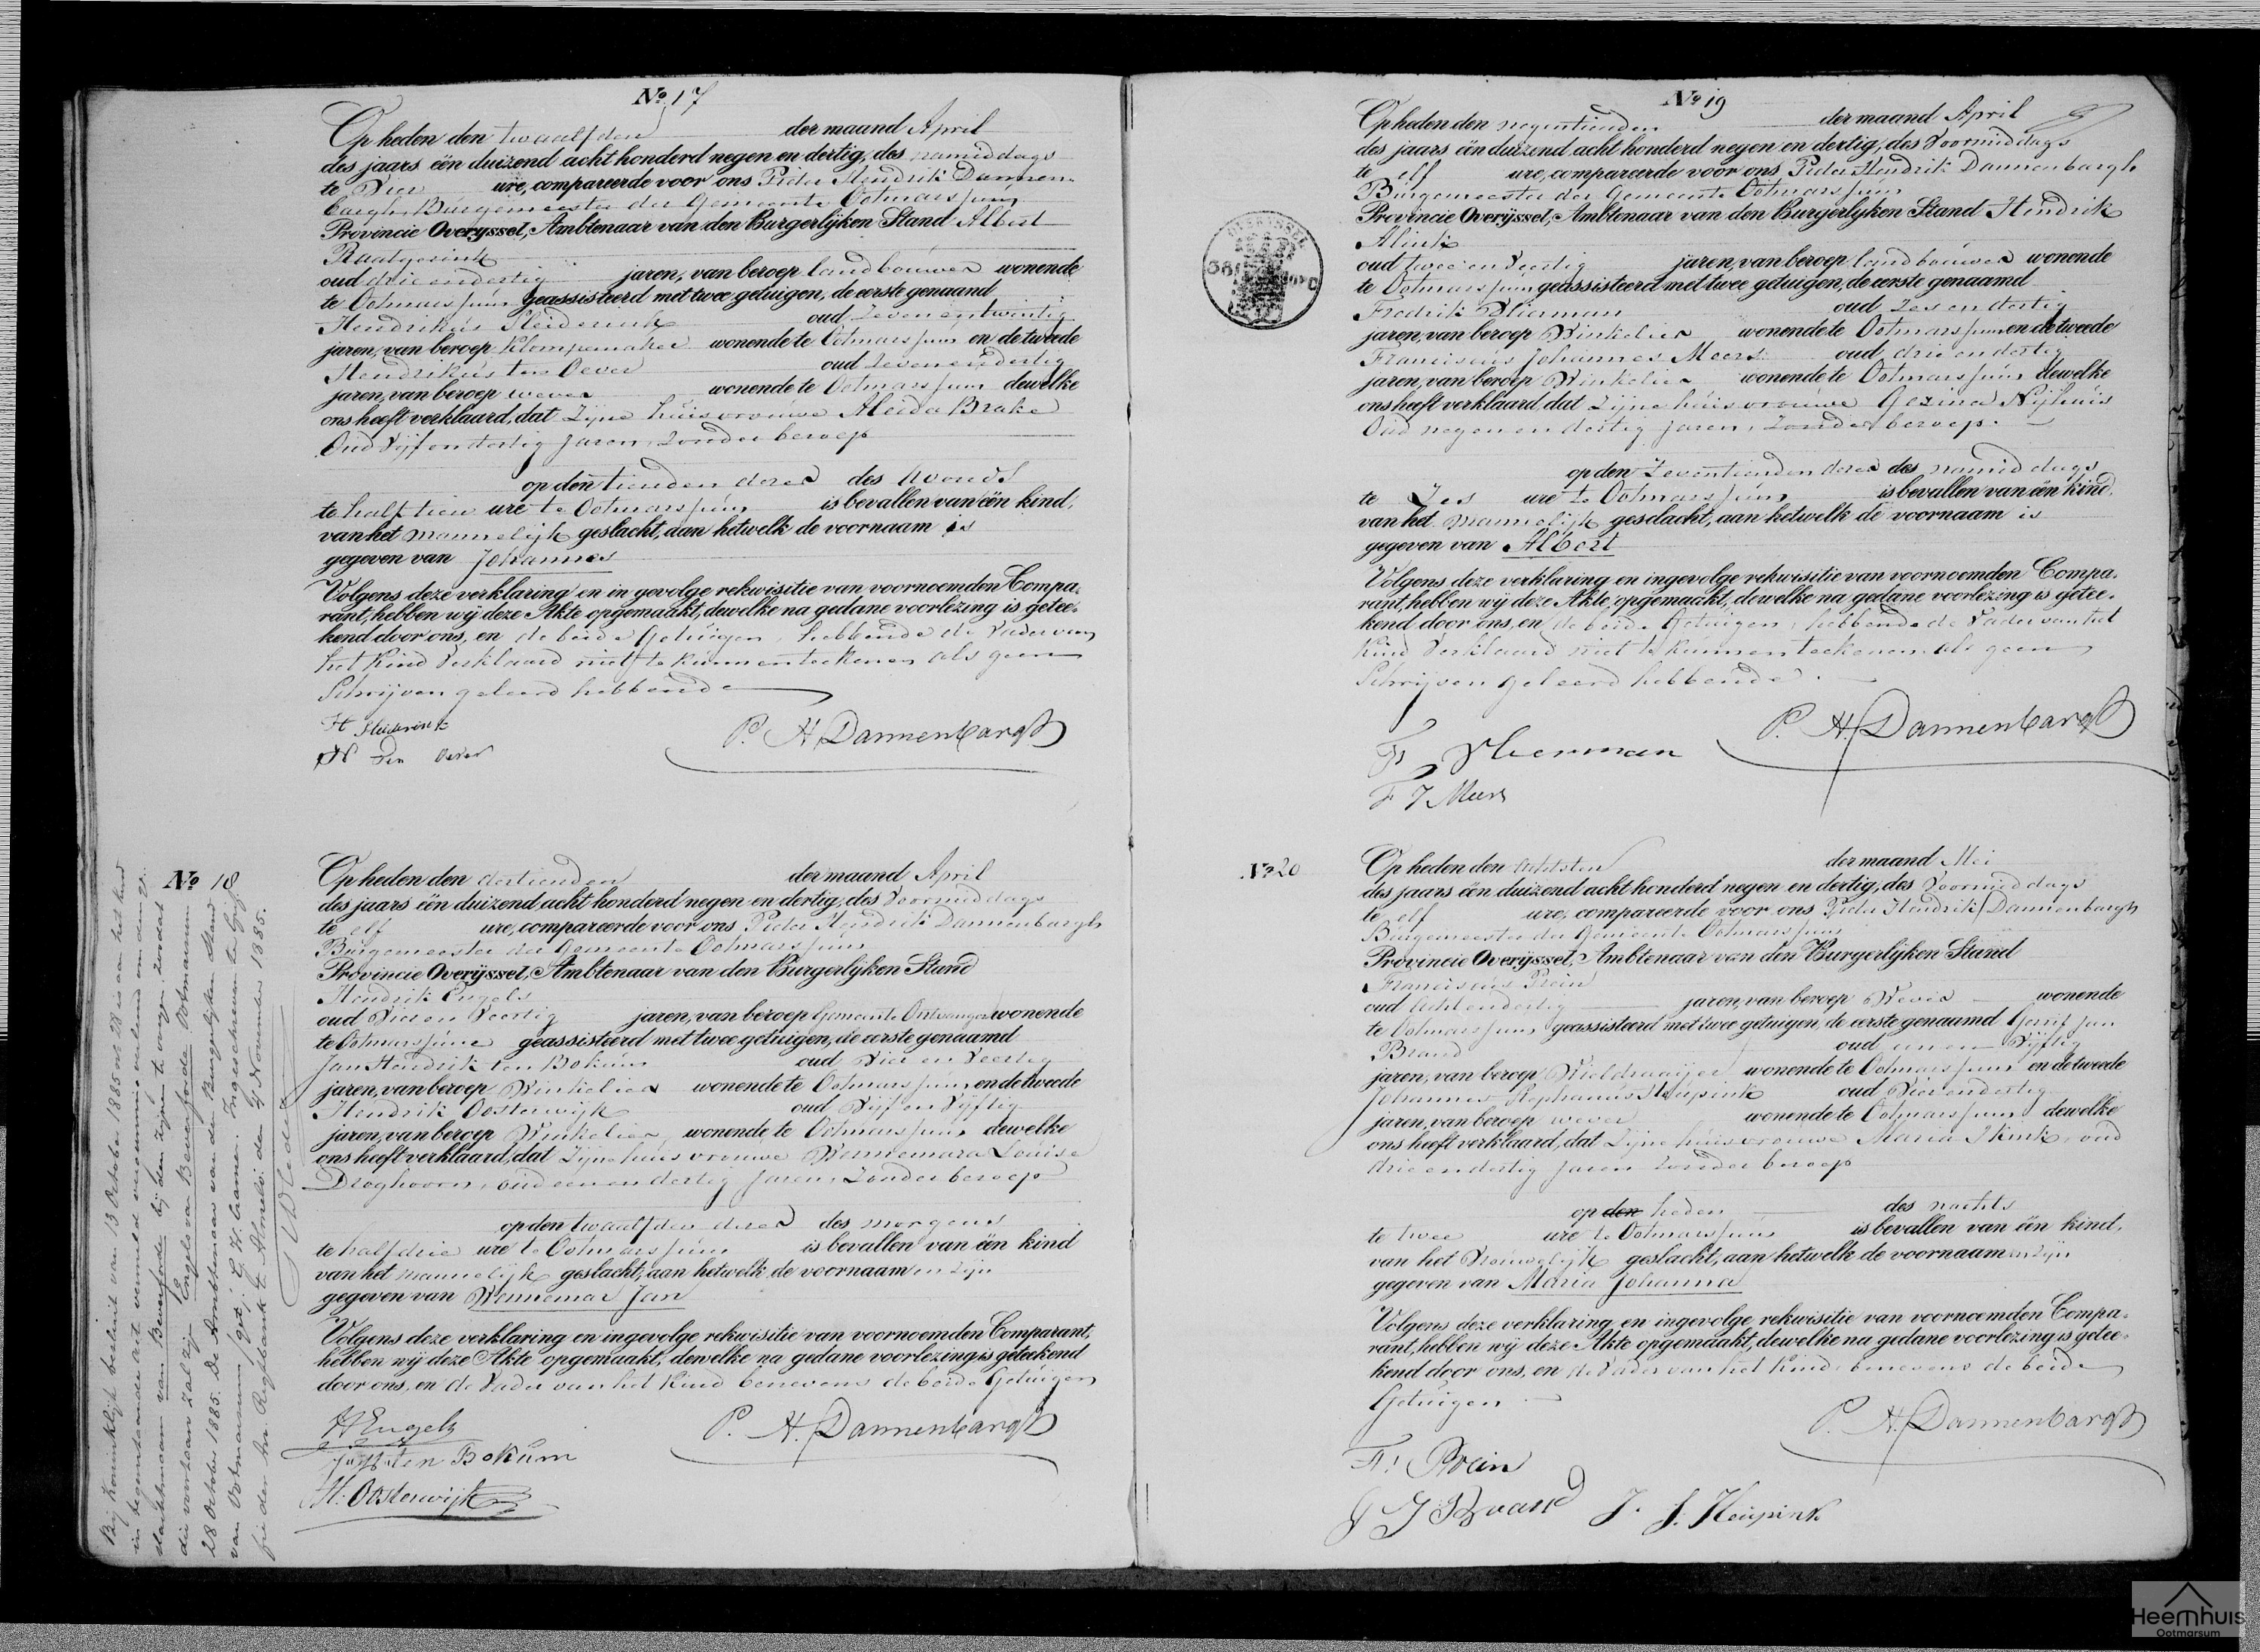 No 17
Op heden den twaalfden der maand April
des jaars één duizend acht honderd negen en dertig, des namiddags
te Vier ure, compareerde voor ons Pieter Hendrik Dannen-
bargh Burgemeester der Gemeente Ootmarssum
Provincie Overijssel, Ambtenaar van den Burgerlijken Stand Albert
Raatgerink
oud drie en dertig jaren, van beroep landbouwer wonende
te Ootmarssum geassisteerd met twee getuigen, de eerste genaamd
Hendrikus Sleiderink oud Zeven en twintig
jaren, van beroep Klompemaker wonende te Ootmarssum en de tweede
Hendrikus ten Oever oud Zeven en dertig
jaren, van beroep wever wonende te Ootmarssum dewelke
ons heeft verklaard, dat Zijne huisvrouwe Aleida Brake
Oud Vijf en dertig Jaren, Zonder beroep
op den tienden dezer des Avonds
te half tien ure te Ootmarssum is bevallen van één kind,
van het mannelijk geslacht, aan hetwelk de voornaam is
gegeven van Johannes
Volgens deze verklaring en in gevolge rekwisitie van voornoemden Compa-
rant, hebben wij deze Akte opgemaakt, dewelke na gedane voorlezing is getee-
kend door ons, en de beide Getuigen, hebbende de Vader van
het Kind Verklaard niet te kunnen teekenen als geen
Schrijven geleerd hebbende
H Sleiderink
P. H. Dannenbargh
H ten Oever
No 18
Op heden den dertienden der maand April
des jaars één duizend acht honderd negen en dertig, des Voormiddags
te elf ure, compareerde voor ons Pieter Hendrik Dannenbargh
Burgemeester der Gemeente Ootmarssum
Provincie Overijssel, Ambtenaar van den Burgerlijken Stand
Hendrik Engels
oud Vier en Veertig jaren, van beroep Gemeente Ontvanger wonende
te Ootmarssum geassisteerd met twee getuigen, de eerste genaamd
Jan Hendrik ten Bokum oud Vier en Veertig
jaren, van beroep Winkelier wonende te Ootmarssum en de tweede
Hendrik Oosterwijk oud Vijf en Vijftig
jaren, van beroep Winkelier wonende te Ootmarssum dewelke
ons heeft verklaard, dat Zijne huisvrouwe Wennemara Louise
Droghoorn, oud een en dertig Jaren, Zonder beroep
op den twaalfden dezer des morgens
te half drie ure te Ootmarssum is bevallen van één kind
van het mannelijk geslacht, aan hetwelk de voornaamen zijn
gegeven van Wennemar Jan
Volgens deze verklaring en ingevolge rekwisitie van voornoemden Comparant,
hebben wij deze Akte opgemaakt, dewelke na gedane voorlezing is geteekend
door ons, en de Vader van het Kind benevens de beide Getuigen
H Engels
P. H. Dannenbargh
ten Bokum
H. Oosterwijk
Bij Koninklijk besluit van 13 October 1885 no 28 is aan het kind
in tegenstaande acte vermeld vergunning verleend om den ge-
slachtnaam van Beverforde bij den zijnen te voegen, zoodat
die voortaan zal zijn Engels van Beverforde. Ootmarssum
28 October 1885. De Ambtenaar van den Burgerlijken Stand
van Ootmarssum, (get.) G. H. Cramer. Ingeschreven ter Grif-
fie der Arr. Regtbank te Almelo den 4 November 1885.
No 19
Op heden den negentienden der maand April
des jaars één duizend acht honderd negen en dertig, des Voormiddags
te elf ure, compareerde voor ons Pieter Hendrik Dannenbargh
Burgemeester der Gemeente Ootmarssum
Provincie Overijssel, Ambtenaar van den Burgerlijken Stand Hendrik
Alink
oud twee en Veertig jaren, van beroep landbouwer wonende
te Ootmarssum geassisteerd met twee getuigen, de eerste genaamd
Fredrik Vlierman oud Zes en dertig
jaren, van beroep Winkelier wonende te Ootmarssum en de tweede
Franciscus Johannes Meers oud drie en dertig
jaren, van beroep Winkelier wonende te Ootmarssum dewelke
ons heeft verklaard, dat Zijne huisvrouwe Gezina Nijhuis
Oud negen en dertig jaren, Zonder beroep.
op den Zeventienden dezer des namiddags
te Zes ure te Ootmarssum is bevallen van één kind,
van het mannelijk geslacht, aan hetwelk de voornaam is
gegeven van Albert
Volgens deze verklaring en ingevolge rekwisitie van voornoemden Compa-
rant, hebben wij deze Akte opgemaakt, dewelke na gedane voorlezing is getee-
kend door ons, en de beide Getuigen, hebbende de Vader van het
Kind Verklaard niet te kunnen teekenen als geen
Schrijven geleerd hebbende.
P. H. Dannenbargh
F Vlierman
F J Meers
No 20
Op heden den achtsten der maand Mei
des jaars één duizend acht honderd negen en dertig, des Voormiddags
te elf ure, compareerde voor ons Pieter Hendrik Dannenbargh
Burgemeester der Gemeente Ootmarssum
Provincie Overijssel, Ambtenaar van den Burgerlijken Stand
Franciscus Prein
oud acht en dertig jaren, van beroep Wever wonende
te Ootmarssum geassisteerd met twee getuigen, de eerste genaamd Gerrit Jan
Brand oud een en Vijftig
jaren, van beroep Wieldraaijer wonende te Ootmarssum en de tweede
Johannes Stephanus Heupink oud Vier en dertig
jaren, van beroep wever wonende te Ootmarssum dewelke
ons heeft verklaard, dat Zijne huisvrouwe Maria Ikink, oud
drie en dertig Jaren Zonder beroep
op den heden des nachts
te twee ure te Ootmarssum is bevallen van één kind,
van het Vrouwelijk geslacht, aan hetwelk de voornaamen zijn
gegeven van Maria Johanna
Volgens deze verklaring en ingevolge rekwisitie van voornoemden Compa-
rant, hebben wij deze Akte opgemaakt, dewelke na gedane voorlezing is getee-
kend door ons, en de Vader van het Kind benevens de beide
Getuigen
P. H. Dannenbargh
F. Prein
G J Brand J. S. Heupink
Heemhuis
Ootmarsum